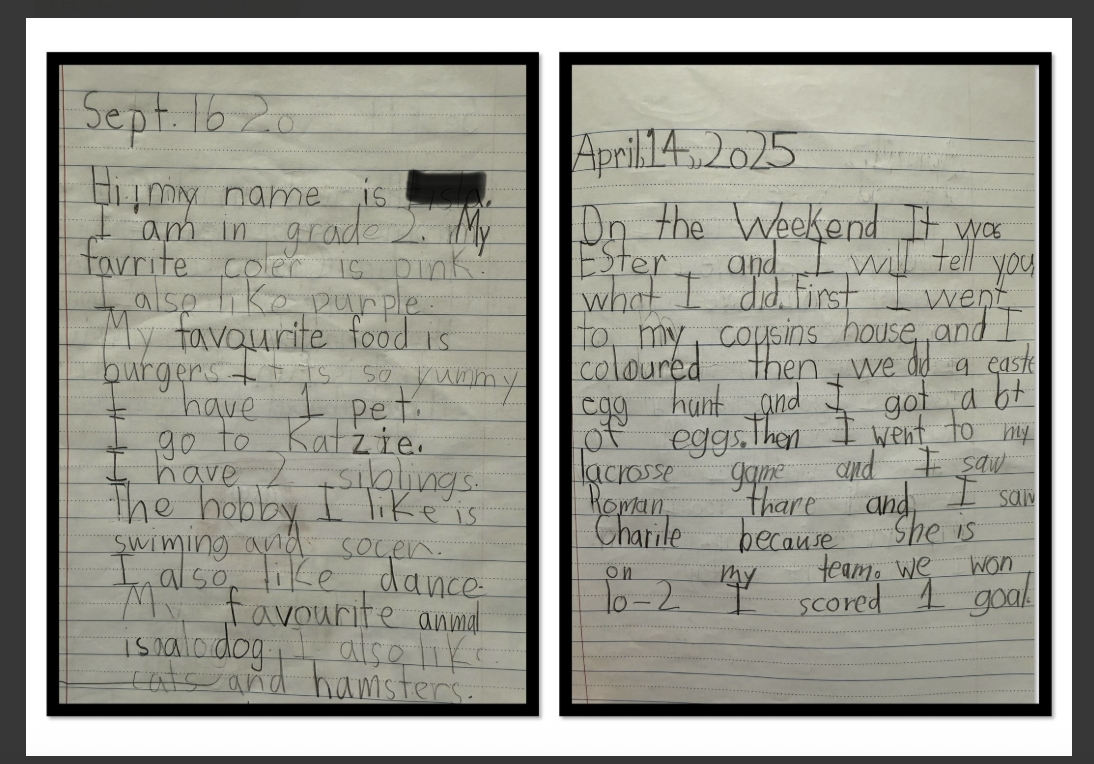 Sept. 16 20
Hi! my name is
I am in grade 2. My
favrite coler is pink.
I also like purple.
My favourite food is
burgers It is so yummy
I have 1 pet.
I go to Katzie.
I have 2 siblings.
The hobby I like is
swiming and socer.
I also like dance.
My favourite anmal
is dog. I also like
cats and hamsters.
April,14,2025
On the Weekend It was
Ester and I will tell you
what I did. first I went
to my cousins house and I
coloured then we did a easte
egg hunt and I got a bt
of eggs. Then I went to my
lacrosse game and I saw
Roman thare and I saw
Charile because she is
on my team. we won
10-2 I scored 1 goal.